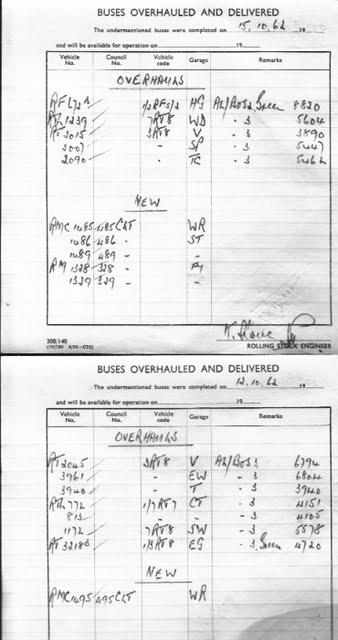 BUSES OVERHAULED AND DELIVERED
The undermentioned buses were completed on 15.10.62 19
and will be available for operation on 19
Vehicle No. Council No. Vehicle code Garage Remarks
OVERHAULS
RF 1/2RF5/2 HG Green 8820
1239 7RT8 WD . 3 5604
2015 3RT8 V . 3 3890
2007 - SP . 3 5447
2090 - TC . 3 5462
NEW
RMC 1485 485CLT WR
1486 486 - ST
1489 489 - -
RM 1328 328 -
1329 329 - -
308/140
ROLLING STOCK ENGINEER
BUSES OVERHAULED AND DELIVERED
The undermentioned buses were completed on 12.10.62 19
and will be available for operation on 19
Vehicle No. Council No. Vehicle code Garage Remarks
OVERHAULS
RT 2045 3RT8 V 6794
3961 - EW - 3 6804
3940 - T - 3 3940
772 1/7RT7 CT - 3 4151
813 - - - 3 4105
1172 7RT8 SW - 3 5578
RT 3218 1/3RT8 EG - 3 Green 4720
NEW
RMC 1495 495CLT WR